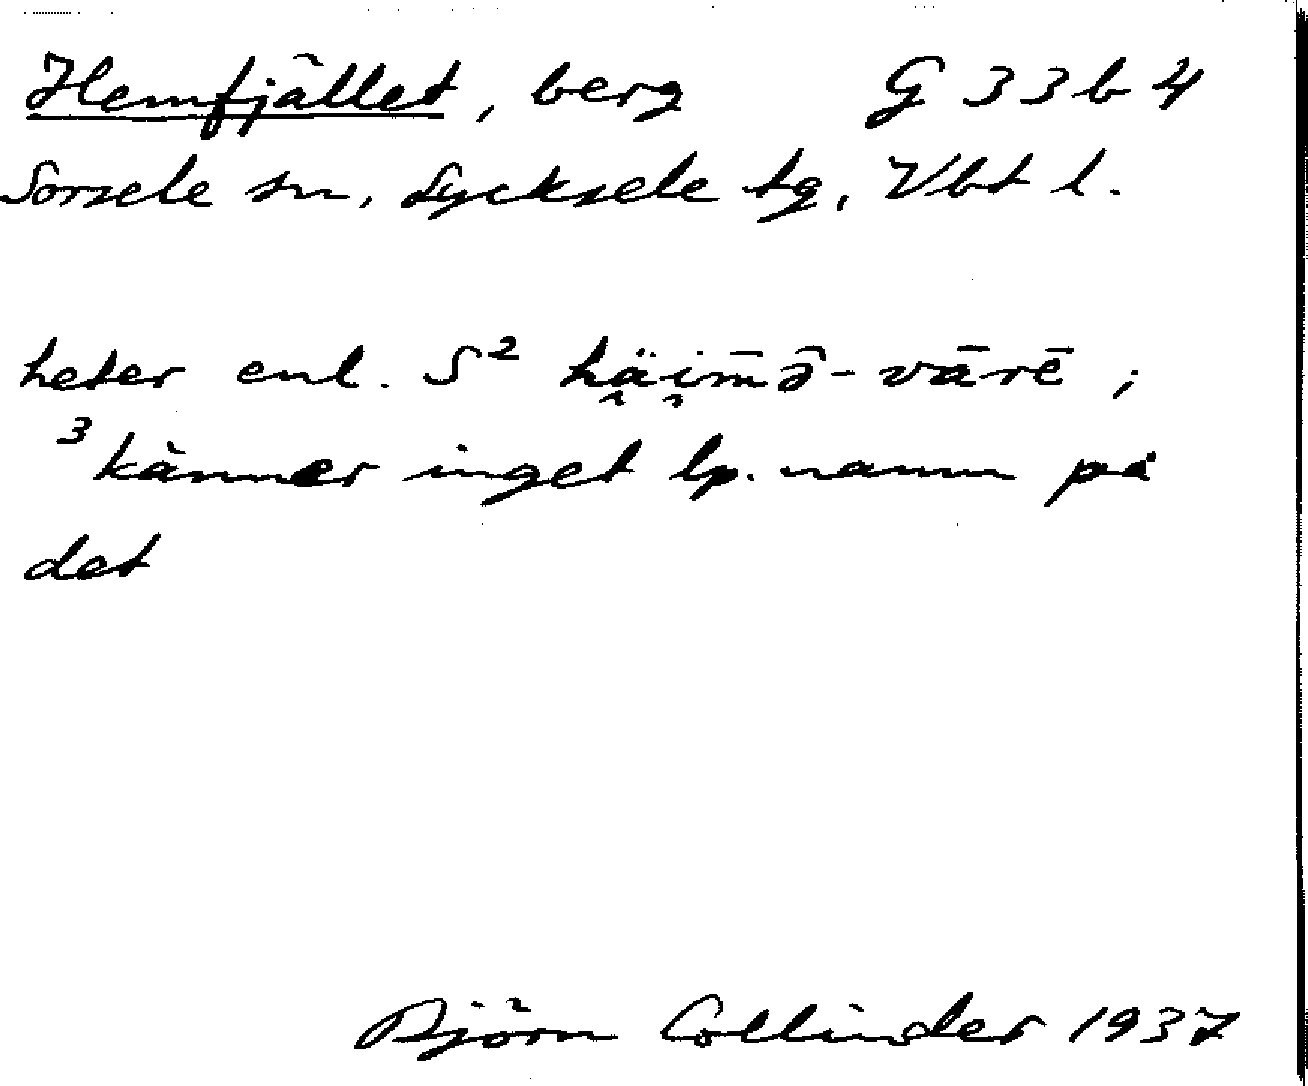 Hemfjället, berg G 33 b 4
Sorsele sn, Lycksele tg, Vbt l.
heter enl. S² hä̭i̭m̄ə̂-vārē ;
³ känner inget lp. namn på
det
Björn Collinder 1937